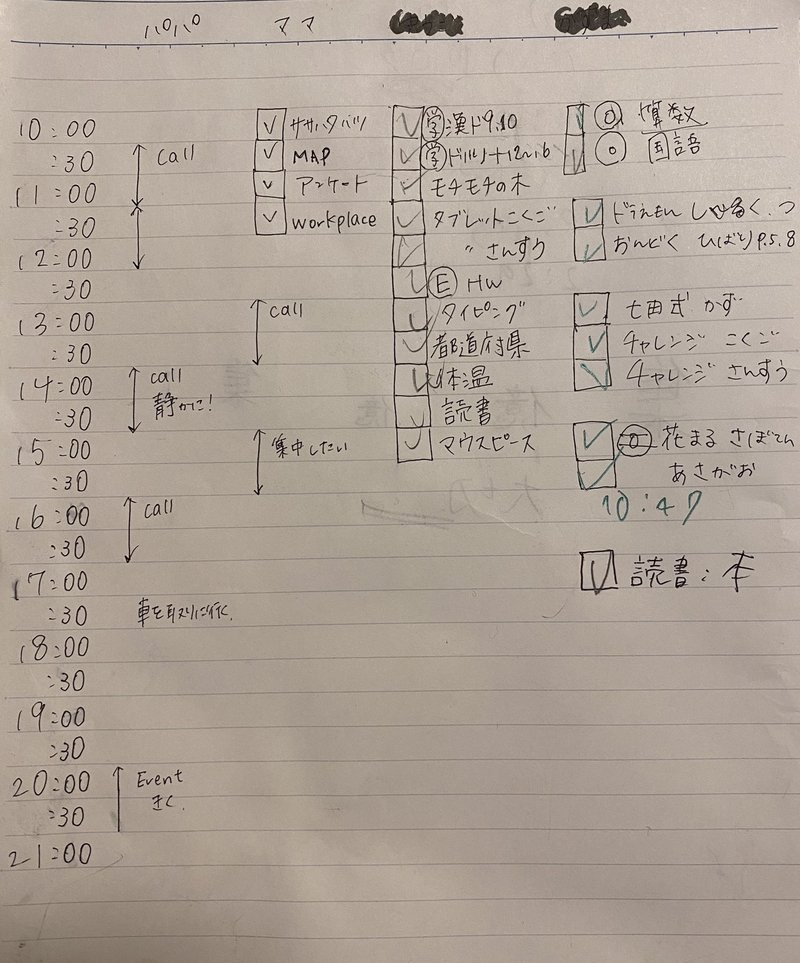 パパ ママ
10:00 ササハタハツ 学 漢ド9.10 算数
:30 call MAP 学 ドリルノート12〜16 国語
11:00 アンケート モチモチの木
:30 workplace タブレットこくご ドラえもん
12:00 〃 さんすう おんどく ひばりP.5.8
:30 E HW
13:00 call タイピング 七田式 かず
:30 都道府県 チャレンジ こくご
14:00 call 体温 チャレンジ さんすう
:30 静かに! 読書
15:00 集中したい マウスピース 花まる さぼてん
:30 あさがお
16:00 call 10:47
:30
17:00 読書:本
:30 車を取りに行く.
18:00
:30
19:00
:30
20:00 Event
:30 きく.
21:00